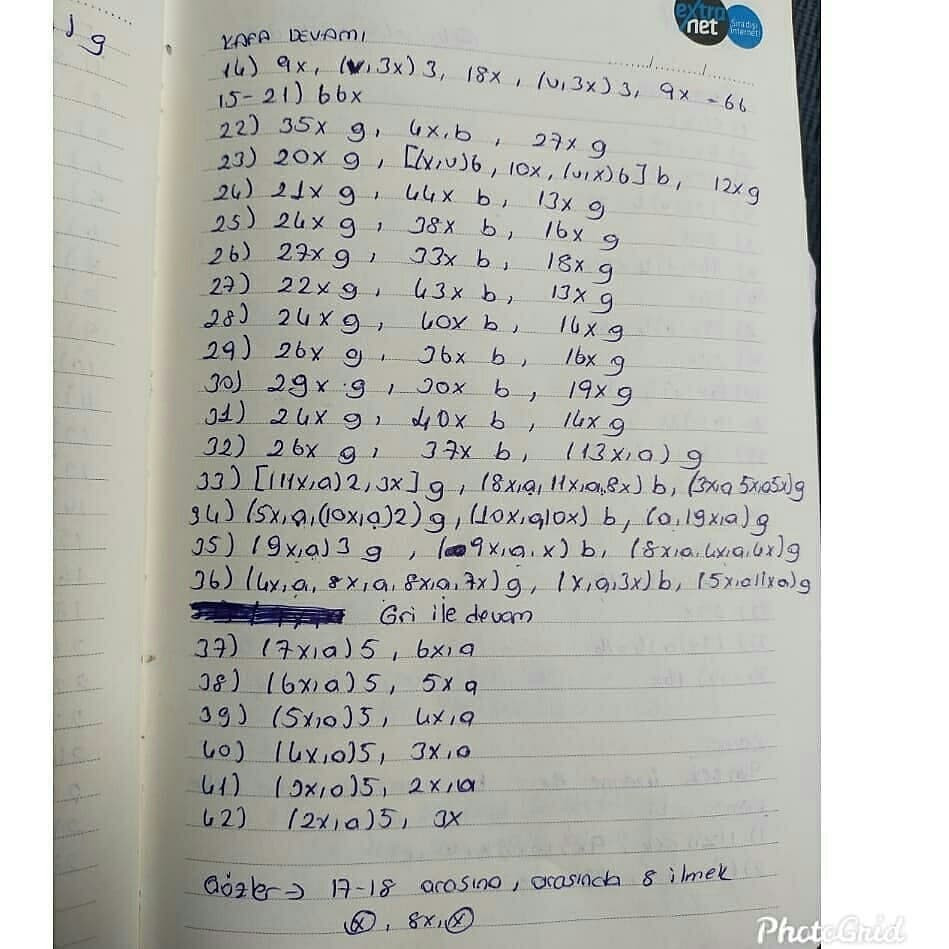 g
extra
net
Sıradışı
İnternet!
KAFA DEVAMI
14) 9x, (v,3x)3, 18x, (v,3x)3, 9x = 66
15-21) 66x
22) 35x g, 4x,b, 27x g
23) 20x g, [(x,v)6, 10x, (v,x)6] b, 12x g
24) 21x g, 44x b, 13x g
25) 24x g, 38x b, 16x g
26) 27x g, 33x b, 18x g
27) 22x g, 43x b, 13x g
28) 24x g, 40x b, 14x g
29) 26x g, 36x b, 16x g
30) 29x g, 30x b, 19x g
31) 24x g, 40x b, 14x g
32) 26x g, 37x b, (13x,a) g
33) [(11x,a)2, 3x] g, (8x,a,11x,a,8x) b, (3x,a 5x,a5x)g
34) (5x,a,(10x,a)2) g, (10x,a10x) b, (a,19x,a) g
35) (9x,a)3 g, (9x,a,x) b, (8x,a,4x,a,4x)g
36) (4x,a, 8x,a, 8x,a,7x)g, (x,a,3x)b, (5x,a11xa)g
Gri ile devam
37) (7x,a)5, 6x,a
38) (6x,a)5, 5x a
39) (5x,a)5, 4x,a
40) (4x,a)5, 3x,a
41) (3x,a)5, 2x,a
42) (2x,a)5, 3x
Gözler → 17-18 arasına, arasında 8 ilmek
(x), 8x,(x)
PhotoGrid